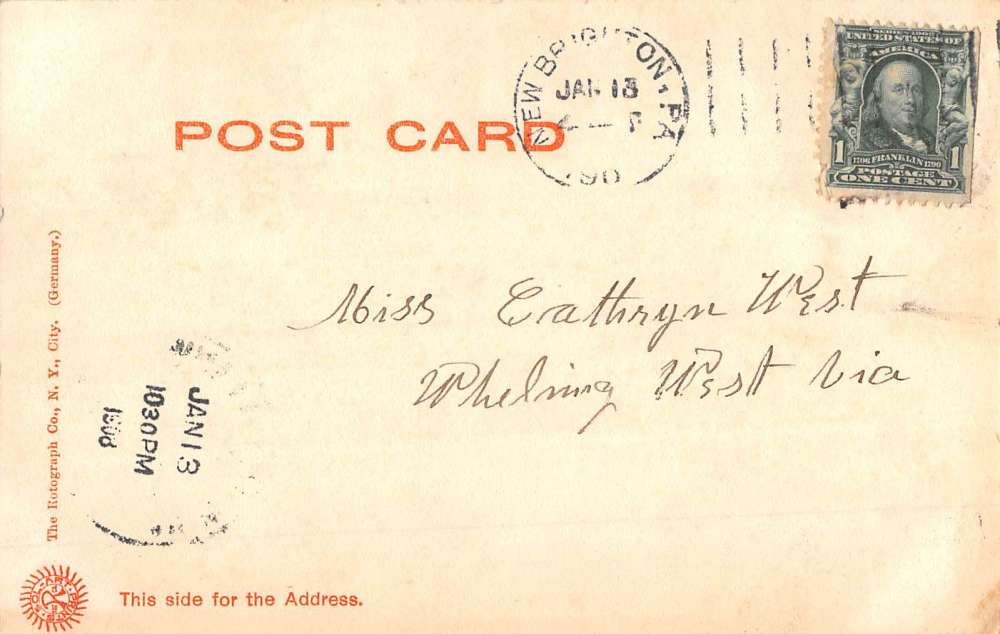 NEW BRIGHTON, PA
JAN 13
190
SERIES 1902
UNITED STATES OF
AMERICA
1 1706 FRANKLIN 1790 1
POSTAGE
ONE CENT
POST CARD
Miss Cathryn West
Wheling West Via
JAN 13
1030 PM
The Rotograph Co., N. Y., City. (Germany.)
This side for the Address.